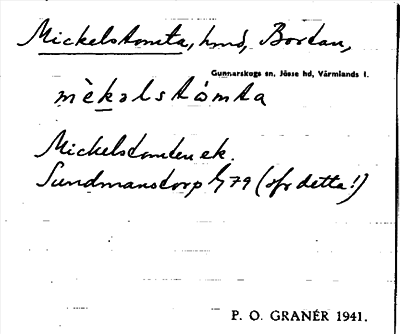 Mickelstomta, hmd, Bortan,
Gunnarskogs sn, Jösse hd, Värmlands l.
mèkəlstòmta
Mickelstomten ek.
Sundmanstorp 1/79 (jfr detta!)
P. O. GRANÉR 1941.